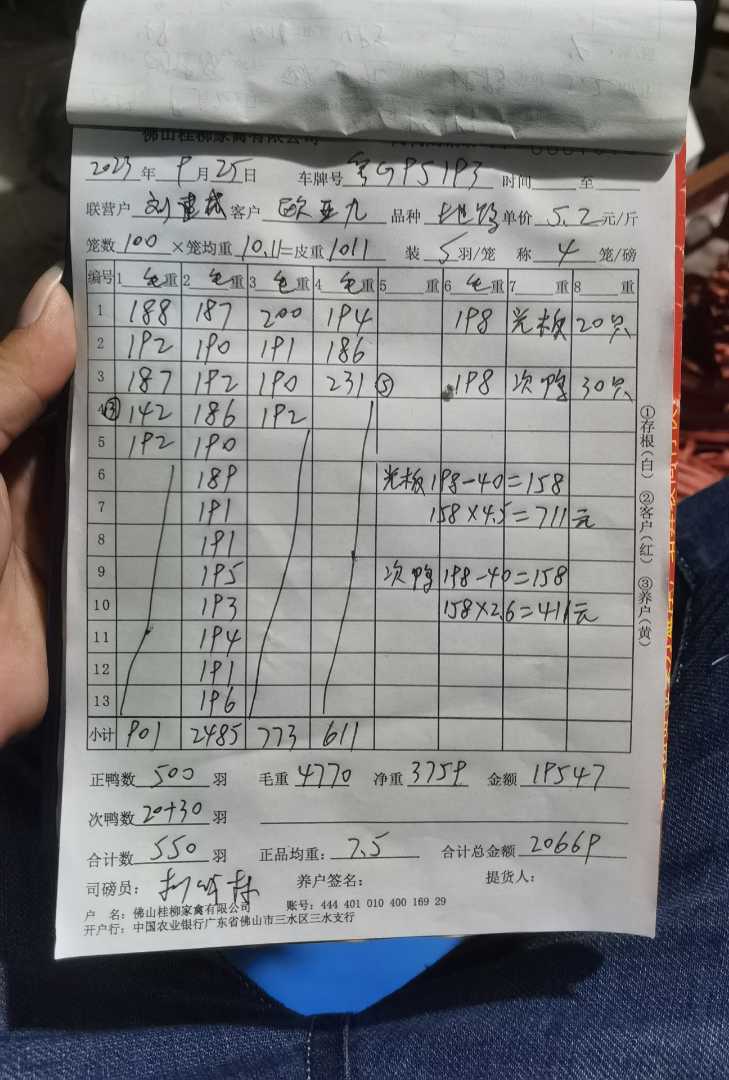 佛山桂柳家禽有限公司
2023年 9月25日 车牌号 粤G95193 时间 至
联营户 刘建成 客户 欧亚九 品种 单价 5.2 元/斤
笼数 100 ×笼均重 10.11=皮重 1011 装 5 羽/笼 称 4 笼/磅
编号 1 毛重 2 毛重 3 毛重 4 毛重 5 重 6 毛重 7 重 8 重
1 188 187 200 194 198 光板 20只
2 192 190 191 186
3 187 192 190 231 ⑤ 198 次鸭 30只
4 ③ 142 186 192
5 192 190
6 189 光板 198-40=158
7 191 158×4.5=711元
8 191
9 195 次鸭 198-40=158
10 193 158×2.6=411元
11 194
12 191
13 196
小计 901 2485 773 611
正鸭数 500 羽 毛重 4770 净重 3759 金额 19547
次鸭数 20+30 羽
合计数 550 羽 正品均重: 7.5 合计总金额 20669
司磅员: 养户签名: 提货人:
户 名: 佛山桂柳家禽有限公司 账号: 444 401 010 400 169 29
开户行: 中国农业银行广东省佛山市三水区三水支行
①存根(白) ②客户(红) ③养户(黄)